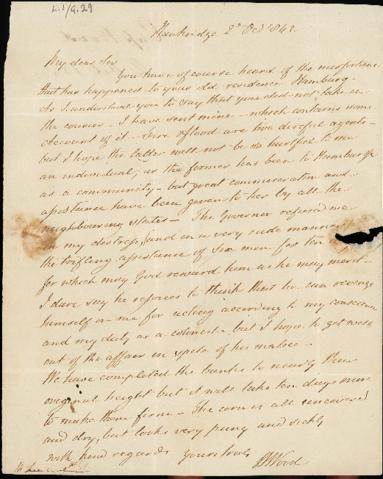 L.1/G.29
2d Oct 1842
My dear Sir
You have of course heard of the misfortune
that has happened to your old residence Hamburg
As I understand you to say that you did not take in
the courier. I have sent mine - which contains some
account of it - fire & flood are two dreadful agents
but I hope the latter will not be as hurtful to me
an individual, as the former has been to Hamburgh
as a community - but great commiseration and
assistance have been given to her by all the
neighbouring states - The Governor refused me
in my distress, and in a very rude manner
the trifling assistance of six men for ten
for which may God reward him as he may merit -
I dare say he rejoices to think that he can revenge
himself on me for acting according to my conscience
and my duty as a colonist - but I hope to get well
out of the affair in spite of his malice -
We have completed the banks to nearly their
original height but it will take ten days more
to make them firm - The corn is all uncovered
and dry, but looks very puny and sickly
with kind regards Yours truly
Wood